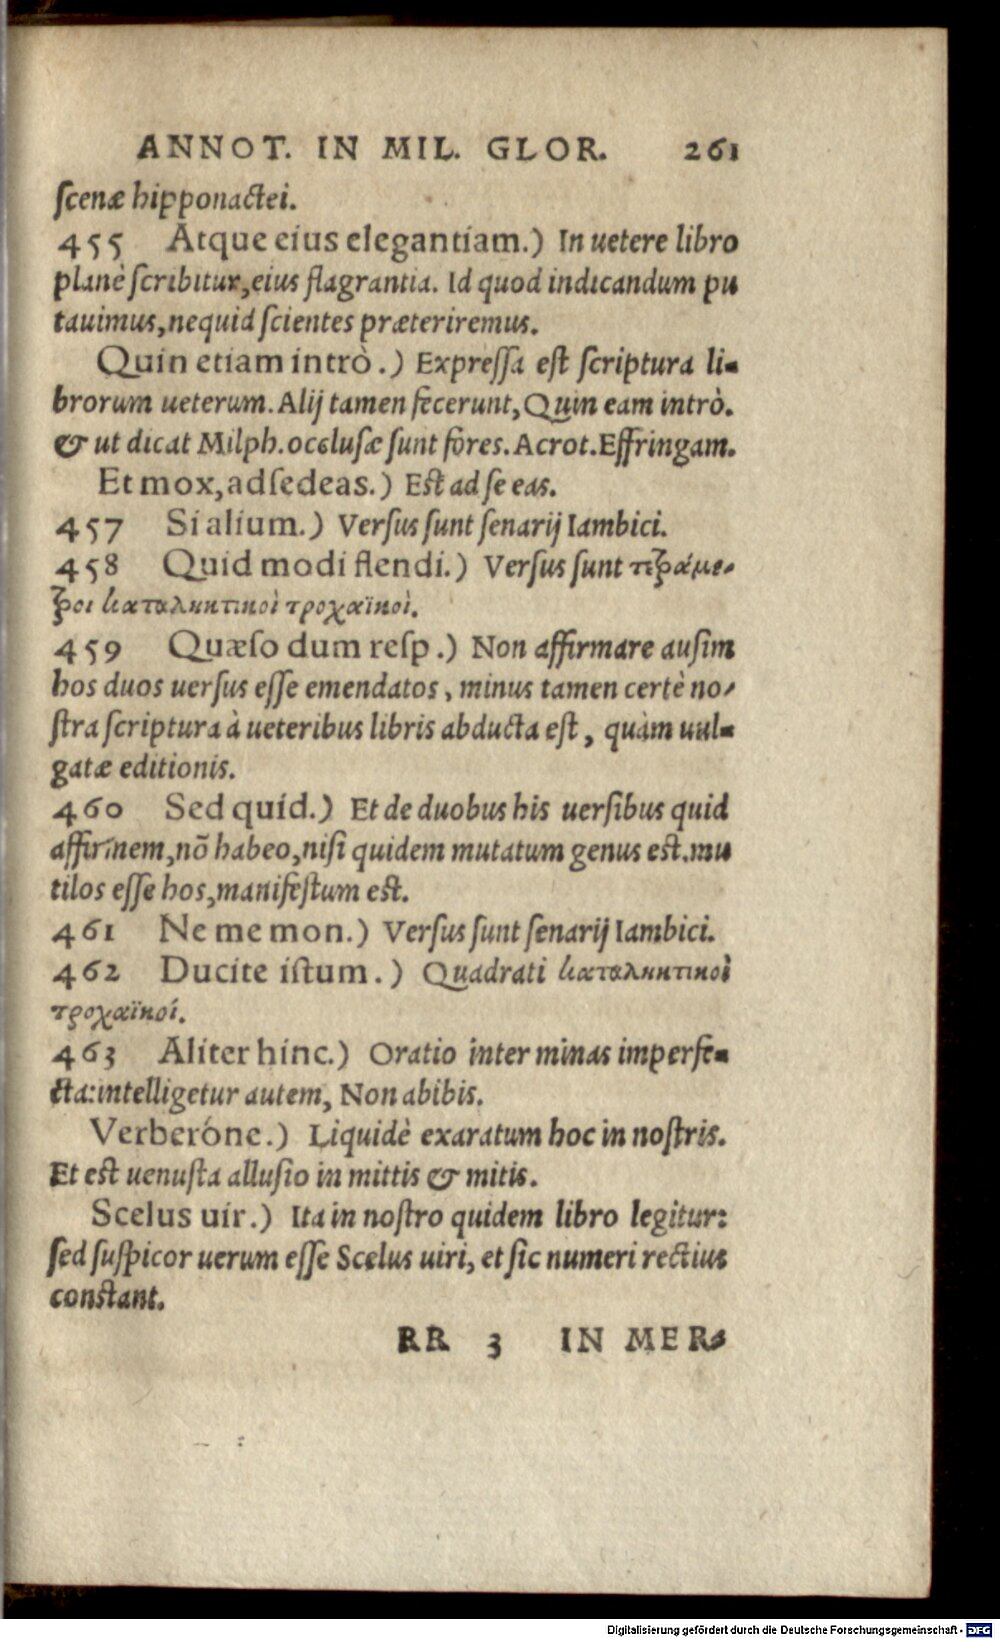 ANNOT. IN MIL. GLOR. 261
ſcenæ hipponactei.
455 Atque eius elegantiam.) In uetere libro
planè ſcribitur, eius flagrantia. Id quod indicandum pu
tauimus, nequid ſcientes præteriremus.
Quin etiam intrò.) Expreſſa eſt ſcriptura li-
brorum ueterum. Alij tamen fecerunt, Quin eam intrò.
& ut dicat Milph. occluſæ ſunt fores. Acrot. Effringam.
Et mox, adſedeas.) Eſt ad ſe eas.
457 Si alium.) Verſus ſunt ſenarij Iambici.
458 Quid modi flendi.) Verſus ſunt τετράμε-
τροι καταληκτικοὶ τροχαϊκοὶ.
459 Quæſo dum reſp.) Non affirmare auſim
hos duos uerſus eſſe emendatos, minus tamen certè no-
ſtra ſcriptura à ueteribus libris abducta eſt, quàm uul-
gatæ editionis.
460 Sed quid.) Et de duobus his uerſibus quid
affirmem, nõ habeo, niſi quidem mutatum genus eſt. mu
tilos eſſe hos, manifeſtum eſt.
461 Ne me mon.) Verſus ſunt ſenarij Iambici.
462 Ducite iſtum.) Quadrati καταληκτικοὶ
τροχαϊκοί.
463 Aliter hinc.) Oratio inter minas imperfe-
cta: intelligetur autem, Non abibis.
Verberóne.) Liquidè exaratum hoc in noſtris.
Et eſt uenuſta alluſio in mittis & mitis.
Scelus uir.) Ita in noſtro quidem libro legitur:
ſed ſuſpicor uerum eſſe Scelus uiri, et ſic numeri rectius
conſtant.
RR 3 IN MER-
Digitalisierung gefördert durch die Deutsche Forschungsgemeinschaft - DFG